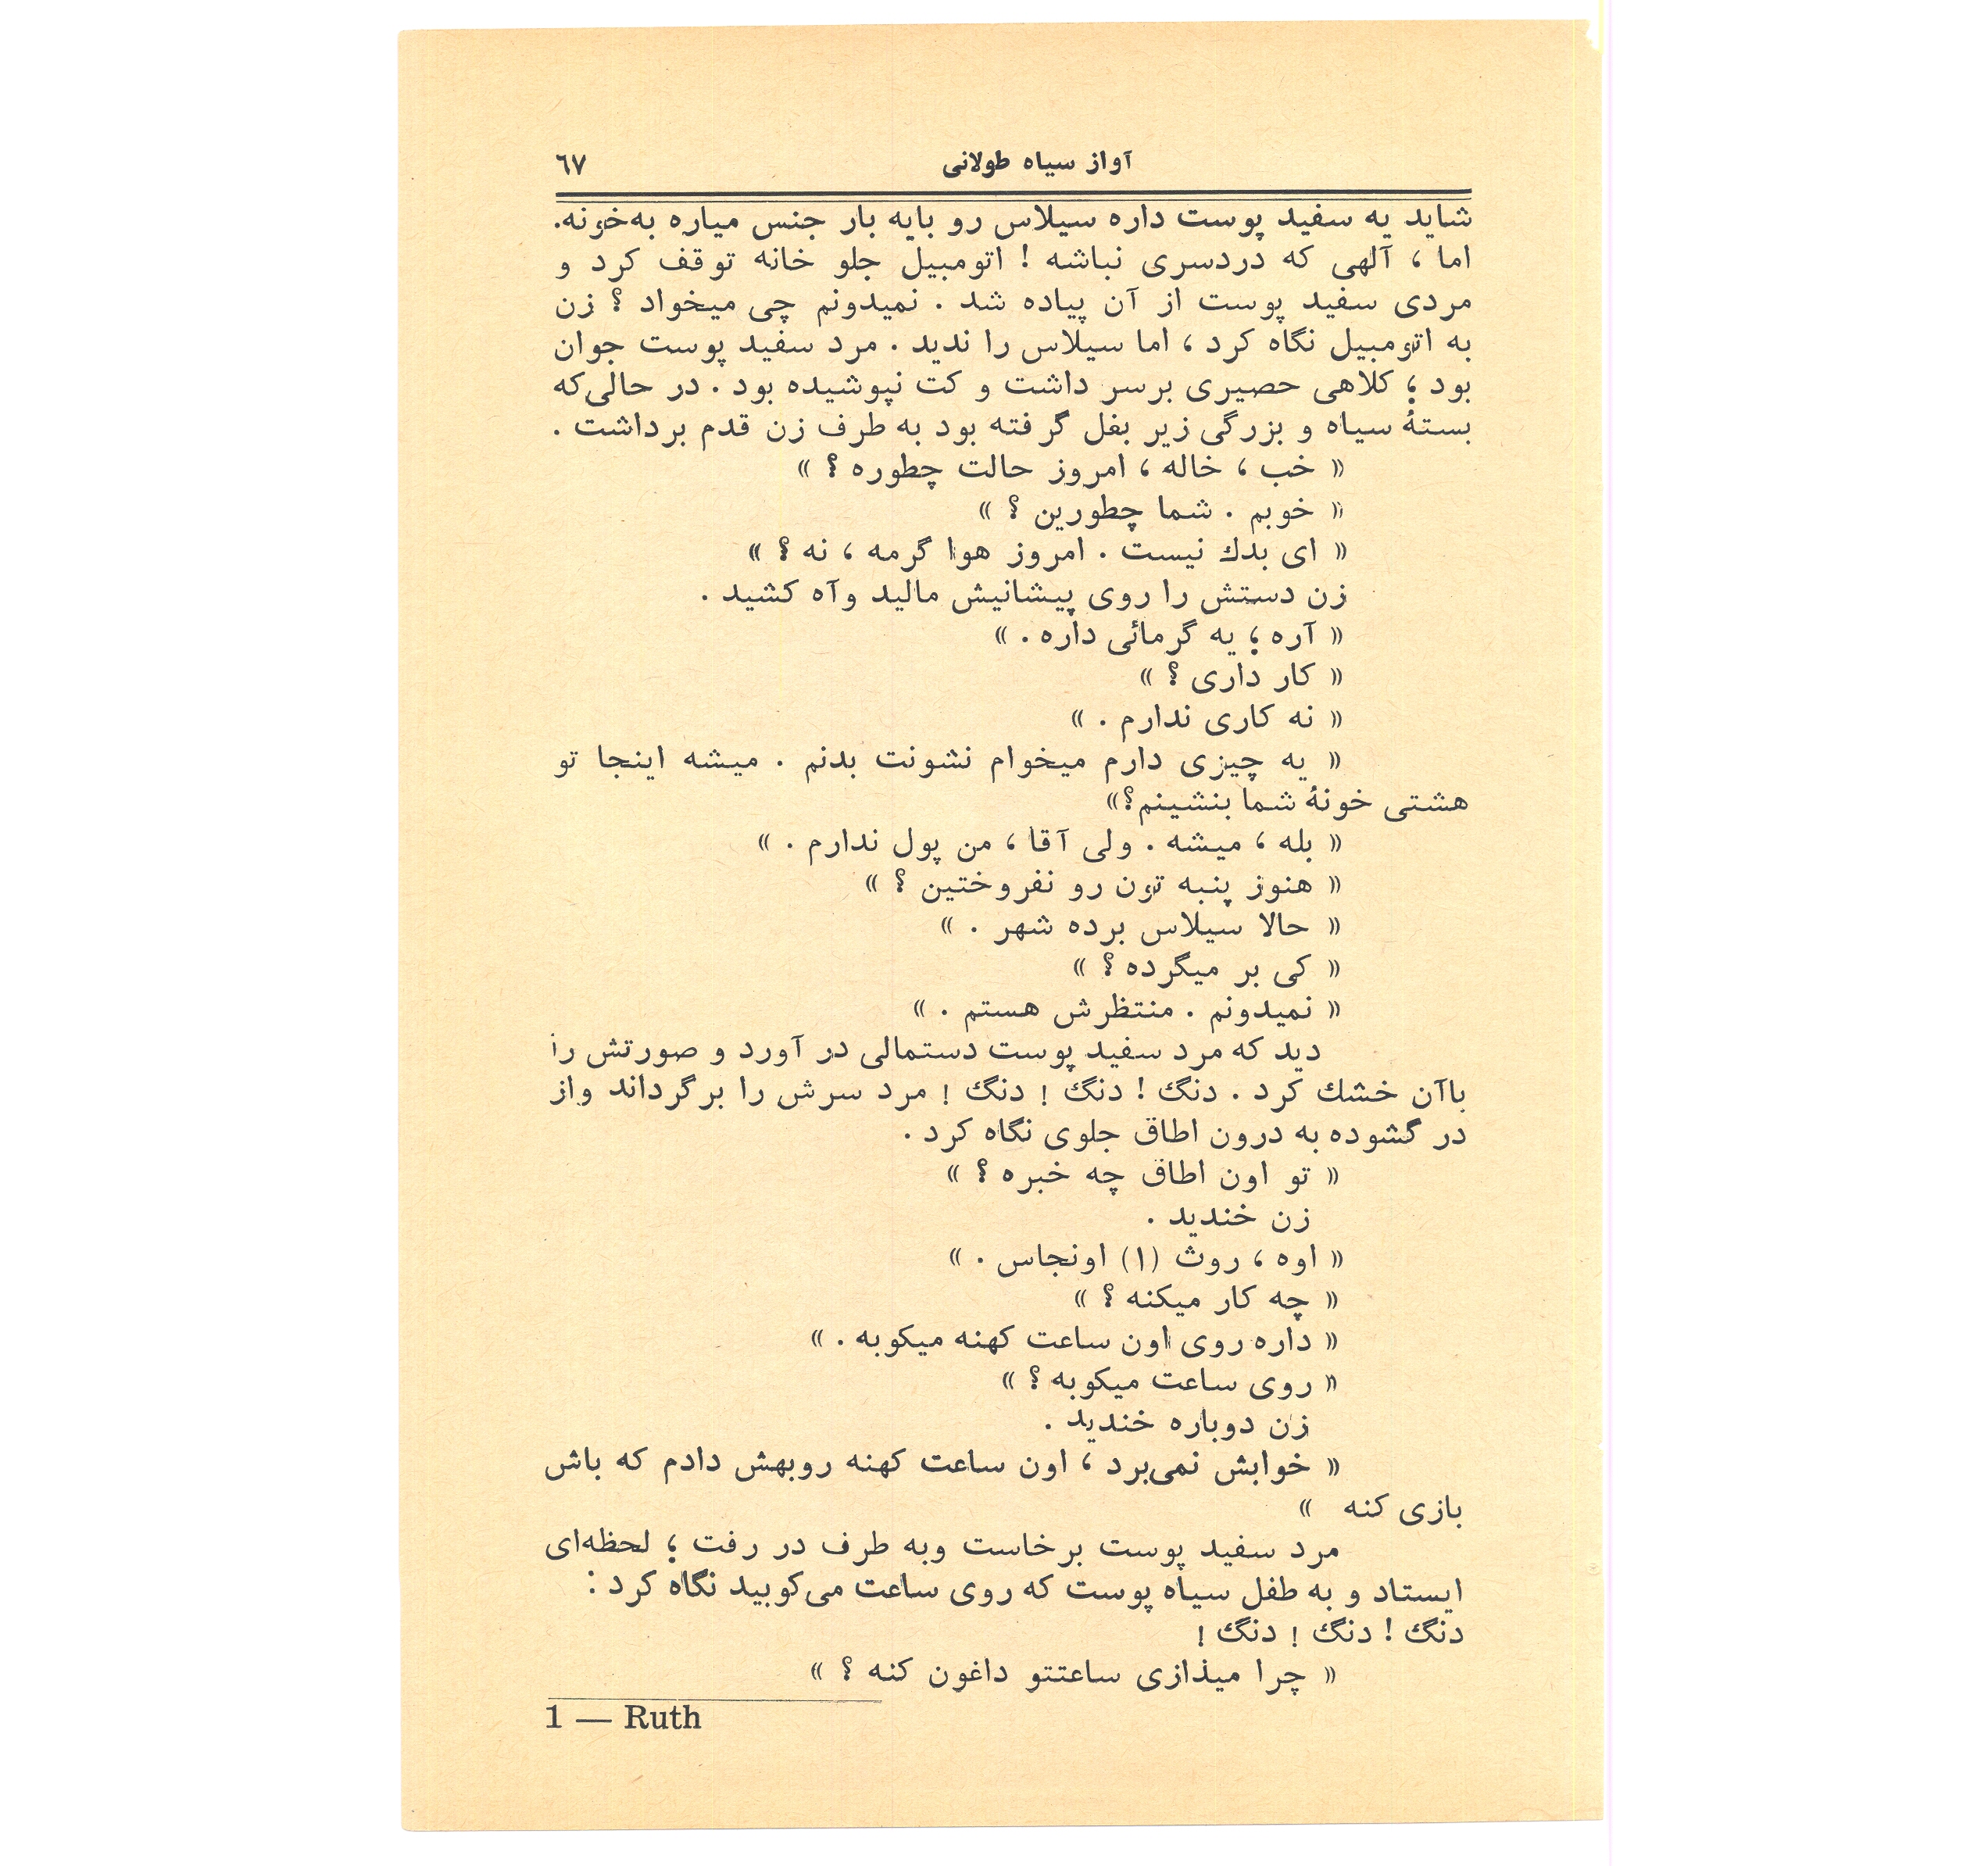 آواز سیاه طولانی ٦٧
شاید یه سفید پوست داره سیلاس رو بایه بار جنس میاره به‌خونه.
اما ، آلهی که دردسری نباشه ! اتومبیل جلو خانه توقف کرد و
مردی سفید پوست از آن پیاده شد . نمیدونم چی میخواد ؟ زن
به اتومبیل نگاه کرد ، اما سیلاس را ندید . مرد سفید پوست جوان
بود ؛ کلاهی حصیری برسر داشت و کت نپوشیده بود . در حالی‌که
بستهٔ سیاه و بزرگی زیر بغل گرفته بود به طرف زن قدم برداشت .
« خب ، خاله ، امروز حالت چطوره ؟ »
« خوبم . شما چطورین ؟ »
« ای بدك نیست . امروز هوا گرمه ، نه ؟ »
زن دستش را روی پیشانیش مالید وآه کشید .
« آره ؛ یه گرمائی داره . »
« کار داری ؟ »
« نه کاری ندارم . »
« یه چیزی دارم میخوام نشونت بدنم . میشه اینجا تو
هشتی خونهٔ شما بنشینم؟»
« بله ، میشه . ولی آقا ، من پول ندارم . »
« هنوز پنبه تون رو نفروختین ؟ »
« حالا سیلاس برده شهر . »
« کی بر میگرده ؟ »
« نمیدونم . منتظرش هستم . »
دید که مرد سفید پوست دستمالی در آورد و صورتش را
باآن خشك کرد . دنگ ! دنگ ! دنگ ! مرد سرش را برگرداند واز
در گشوده به درون اطاق جلوی نگاه کرد .
« تو اون اطاق چه خبره ؟ »
زن خندید .
« اوه ، روث (۱) اونجاس . »
« چه کار میکنه ؟ »
« داره روی اون ساعت کهنه میکوبه . »
« روی ساعت میکوبه ؟ »
زن دوباره خندید .
« خوابش نمی‌برد ، اون ساعت کهنه روبهش دادم که باش
بازی کنه »
مرد سفید پوست برخاست وبه طرف در رفت ؛ لحظه‌ای
ایستاد و به طفل سیاه پوست که روی ساعت می‌کوبید نگاه کرد :
دنگ ! دنگ ! دنگ !
« چرا میذازی ساعتتو داغون کنه ؟ »
1 — Ruth